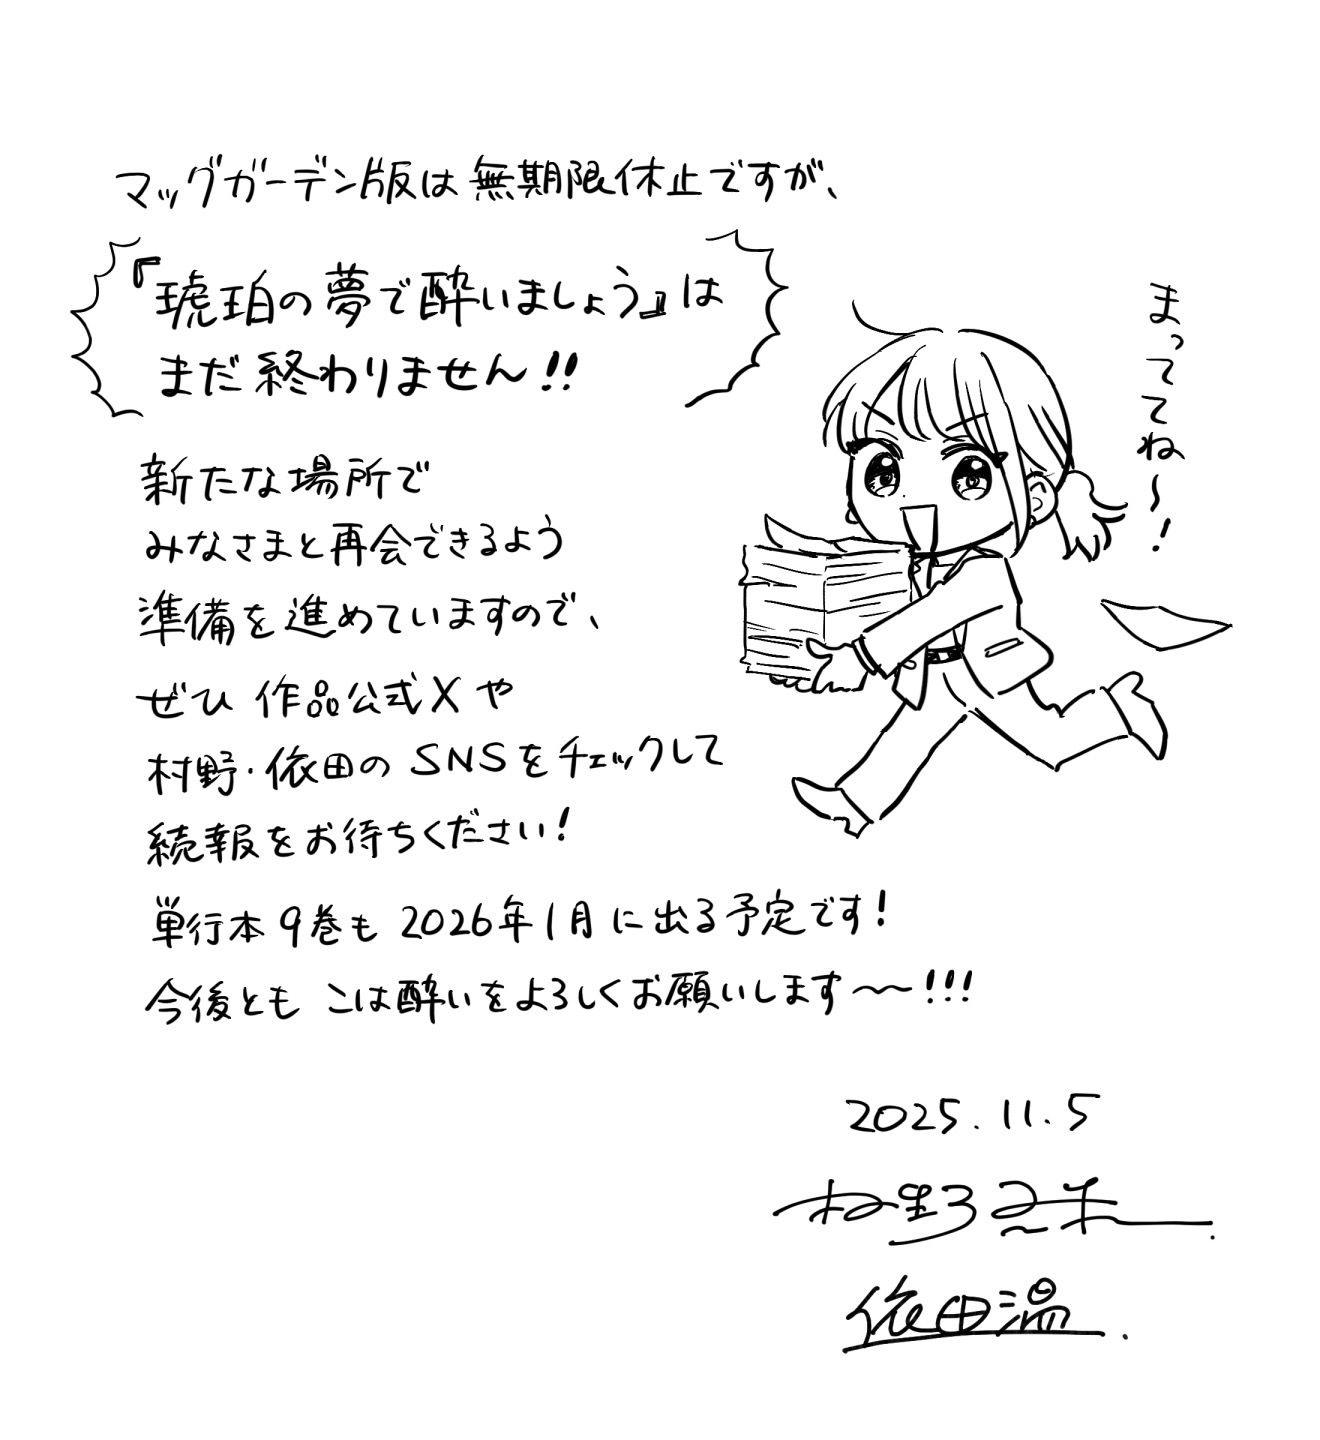 マッグガーデン版は無期限休止ですが、
『琥珀の夢で酔いましょう』は
まだ終わりません!!
まっててね〜!
新たな場所で
みなさまと再会できるよう
準備を進めていますので、
ぜひ作品公式Xや
村野・依田のSNSをチェックして
続報をお待ちください!
単行本9巻も2026年1月に出る予定です!
今後とも こは酔いをよろしくお願いします〜〜!!!
2025.11.5
村野真朱
依田温